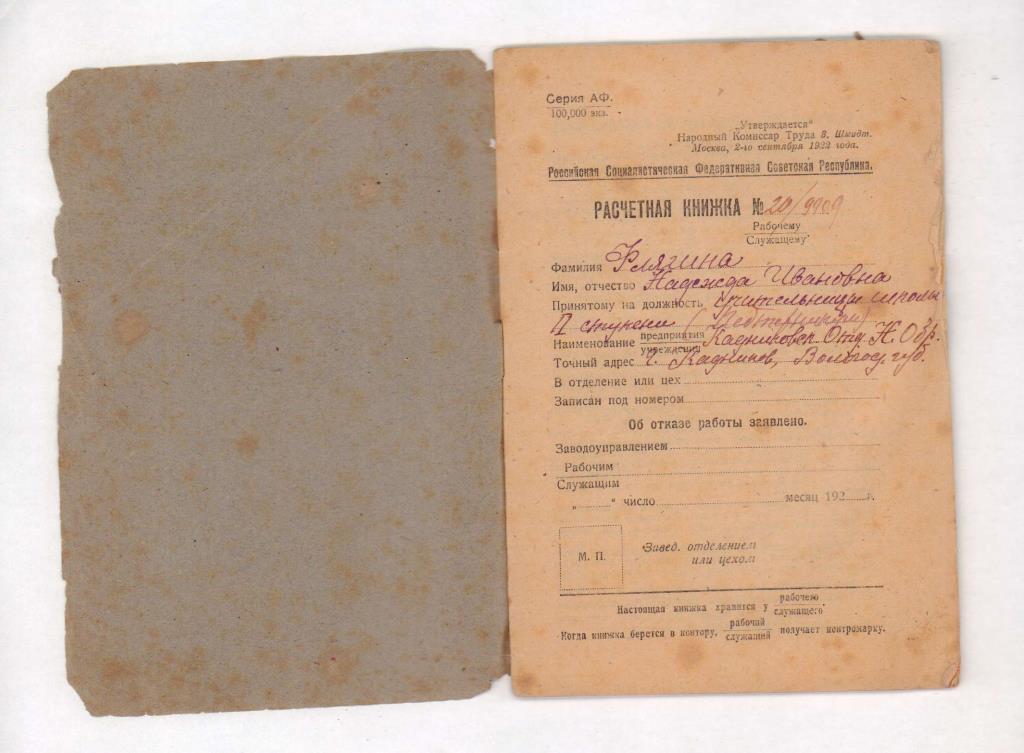 Серия АФ.
100,000 экз.
„Утверждается"
Народный Комиссар Труда В. Шмидт.
Москва, 2-го сентября 1922 года.
Российская Социалистическая Федеративная Советская Республика.
РАСЧЕТНАЯ КНИЖКА № 20/9909
Рабочему
Служащему
Фамилия Флягина
Имя, отчество Надежда Ивановна
Принятому на должность учительницы школы
II ступени
Наименование предприятия учреждения Кадниковск. Отд. Н. Обр.
Точный адрес г. Кадников, Вологод. губ.
В отделение или цех
Записан под номером
Об отказе работы заявлено.
Заводоуправлением
Рабочим
Служащим
„ " число месяц 192 г.
М. П.
Завед. отделением
или цехом
Настоящая книжка хранится у рабочего служащего
Когда книжка берется в контору, рабочий служащий получает контромарку.